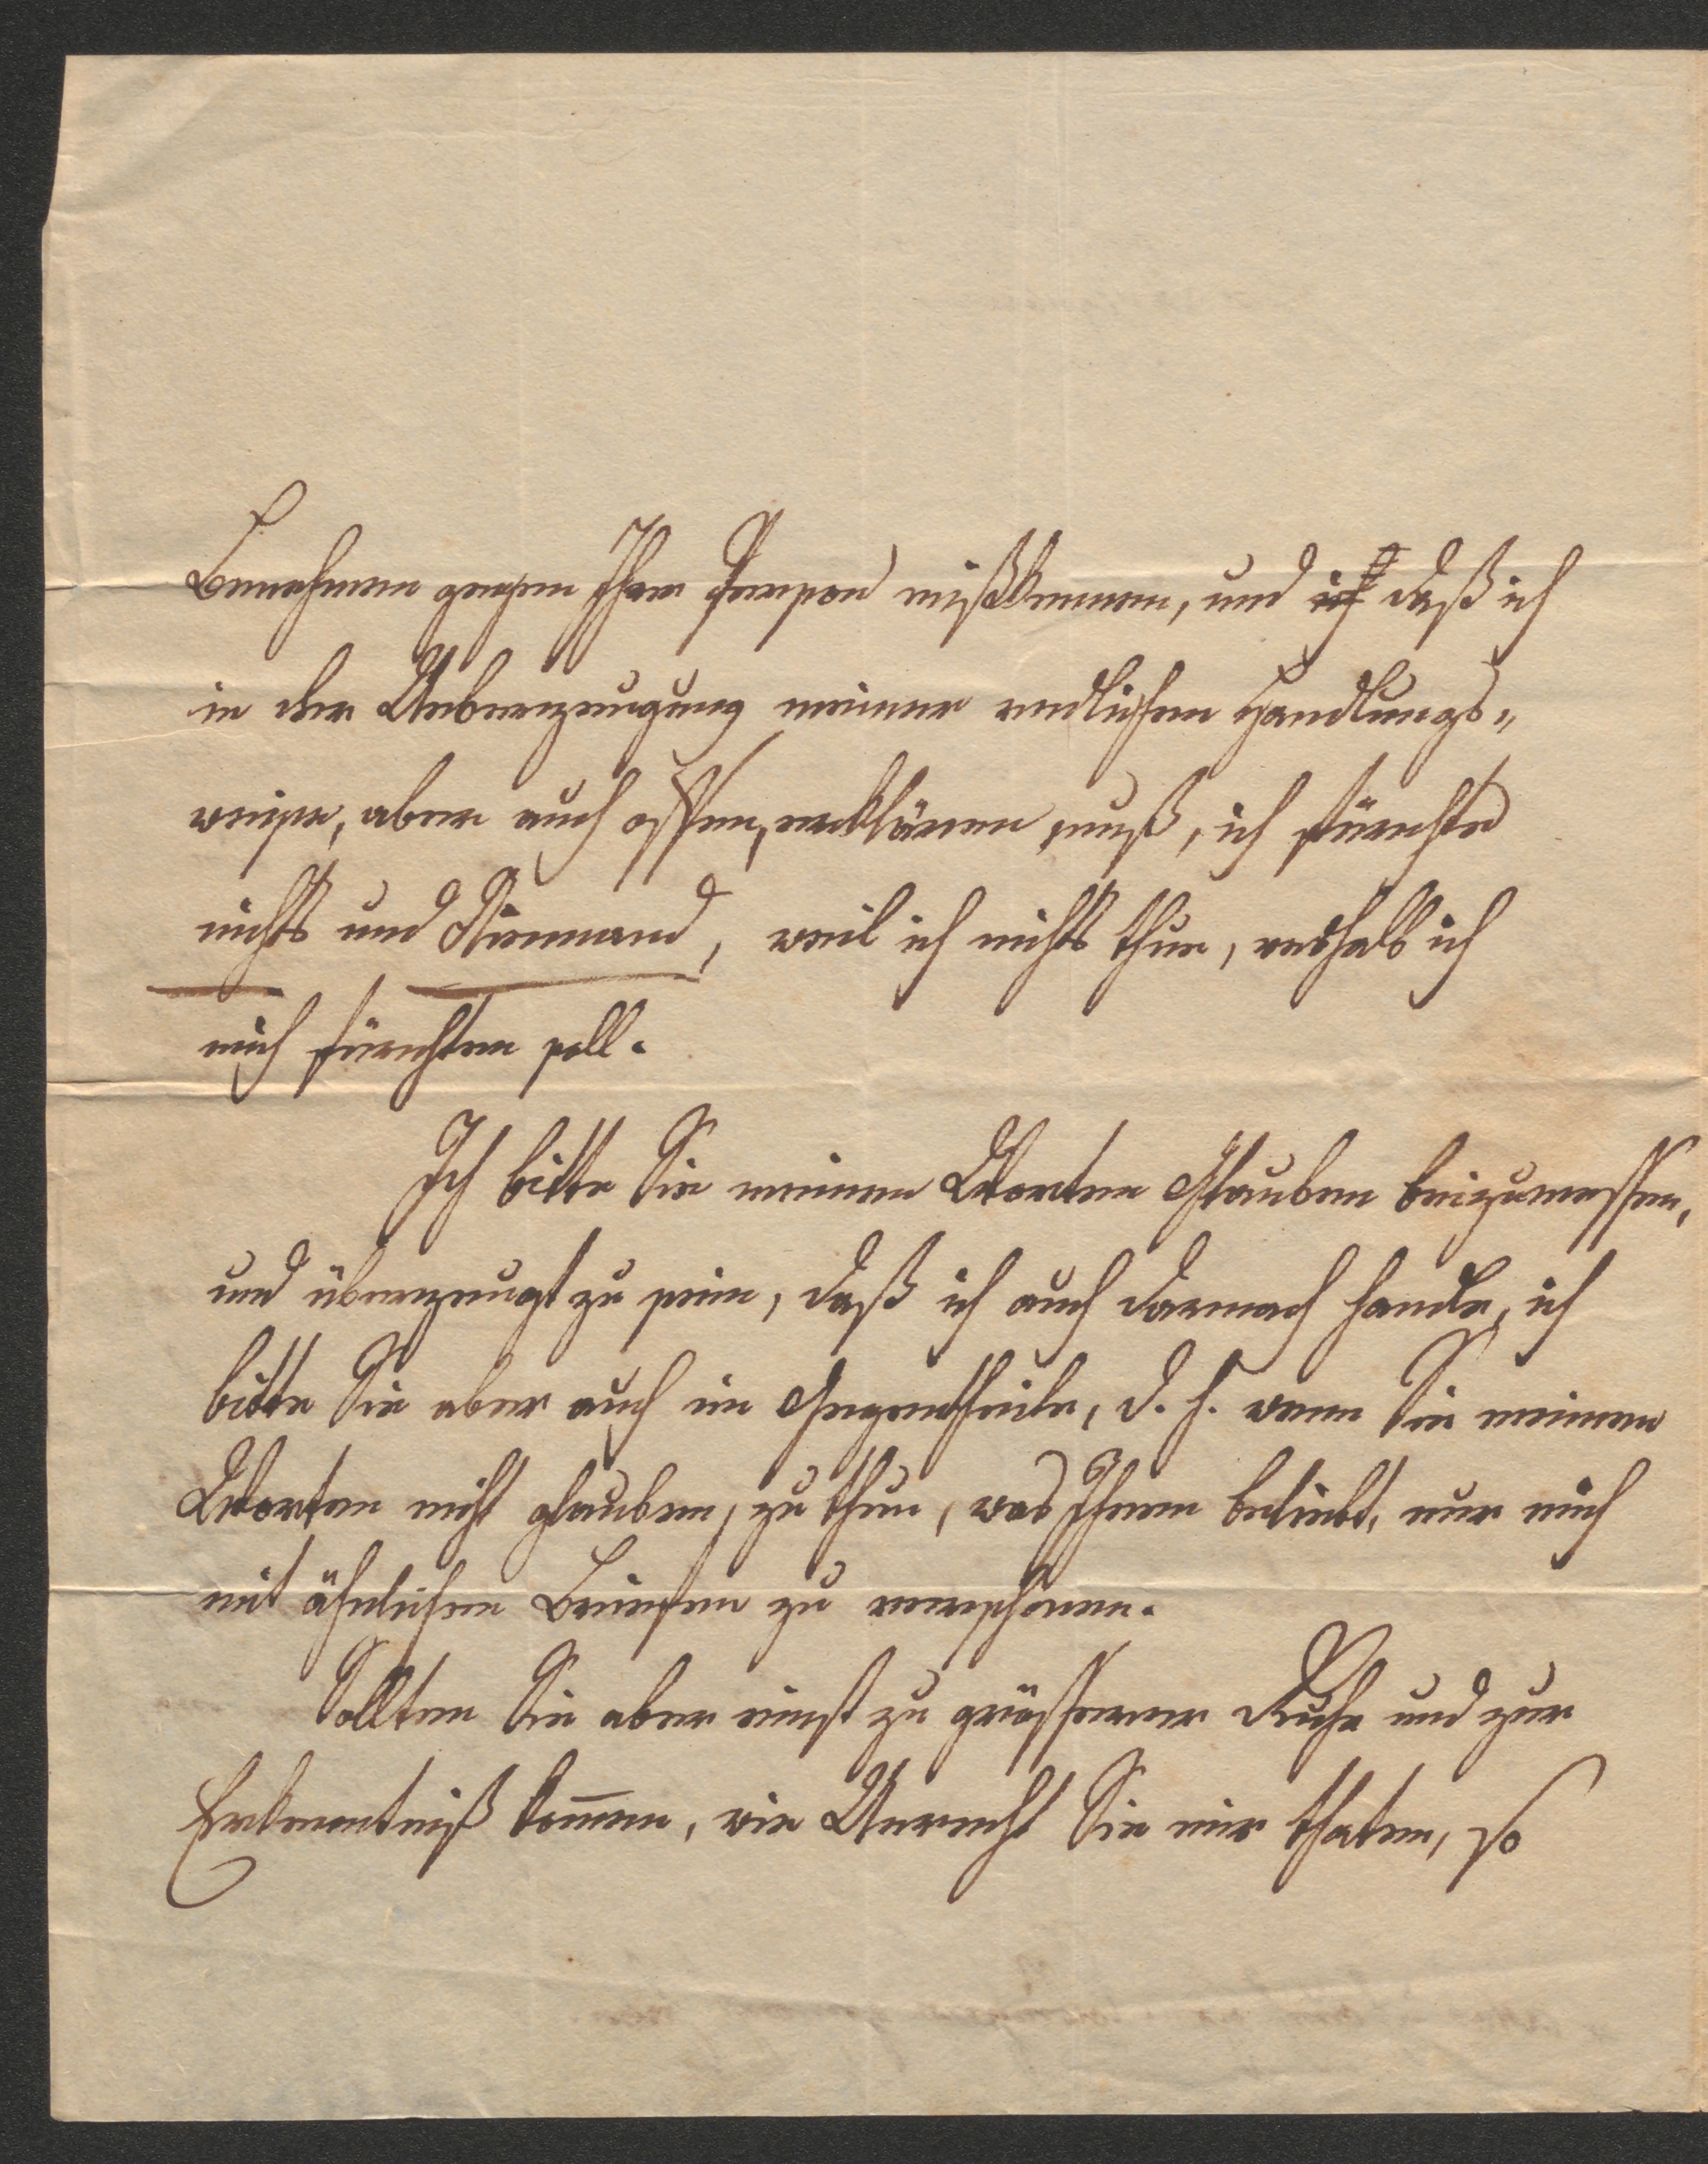 Benehmen gegen Ihre Person mißkennen, und ich daß ich
in der Ueberzeugung meiner redlichen Handlungs„
weise, aber auch offen erklären muß, ich fürchte
nichts und Niemand, weil ich nichts thue, weshalb ich
mich fürchten soll.
Ich bitte Sie meinen Worten Glauben beizumessen,
und überzeugt zu sein, daß ich auch darnach handle, ich
bitte Sie aber auch im Gegentheile, d. h. wenn Sie meinen
Worten nicht glauben, zu thun, was Ihnen beliebt, nur mich
mit ähnlichen Briefen zu verschonen.
Sollten Sie aber einst zu grösserer Ruhe und zur
Erkenntniß kom̅en, wie Unrecht Sie mir thaten, so